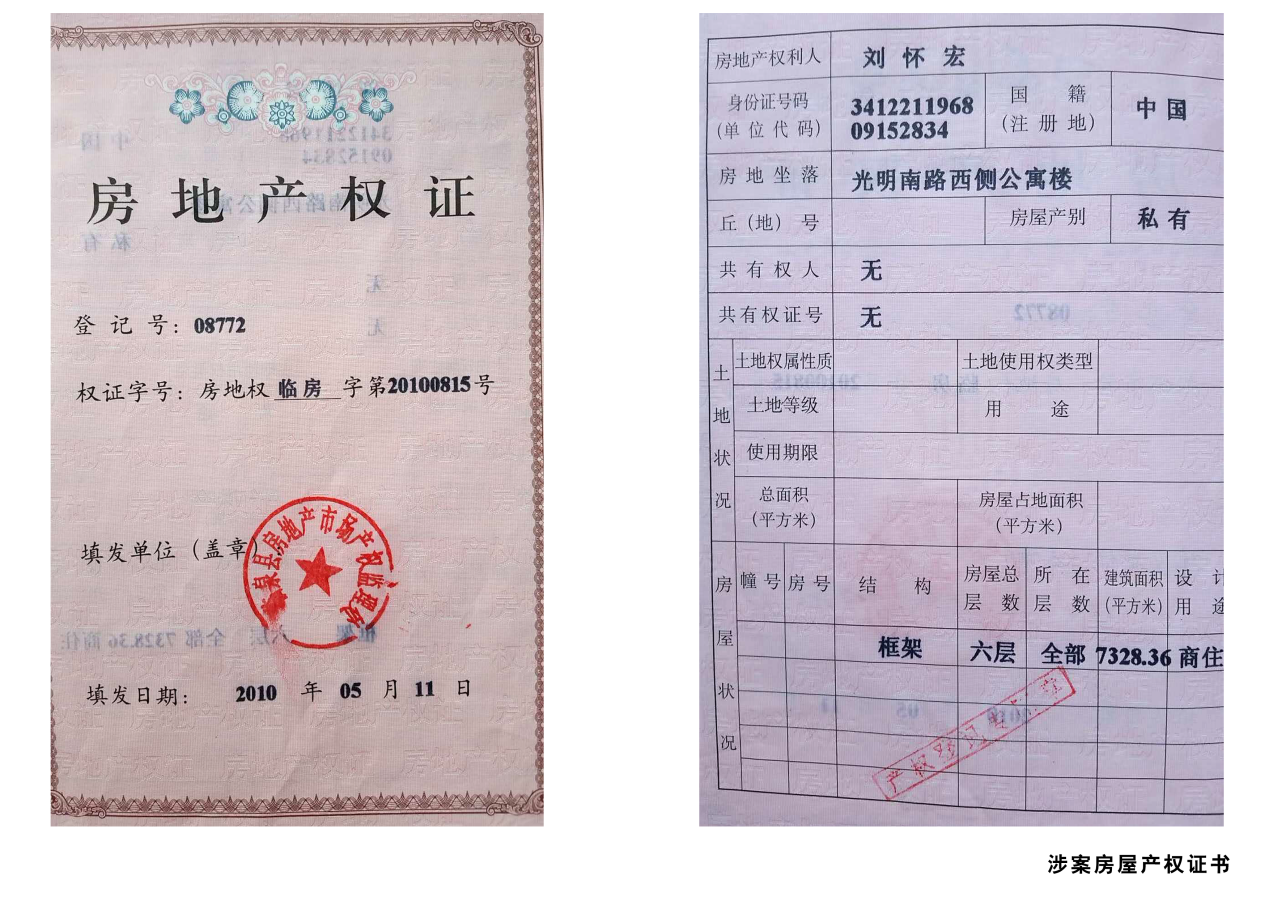 房地产权证
登记号：08772
权证字号：房地权 临房 字第20100815号
填发单位（盖章）
泉县房地产市场产权监理处
填发日期： 2010 年 05 月 11 日
房地产权利人 刘怀宏
身份证号码（单位代码） 341221196809152834 国籍（注册地） 中国
房地坐落 光明南路西侧公寓楼
丘（地）号 房屋产别 私有
共有权人 无
共有权证号 无
土地状况
土地权属性质 土地使用权类型
土地等级 用途
使用期限
总面积（平方米） 房屋占地面积（平方米）
房屋状况
幢号 房号 结构 房屋总层数 所在层数 建筑面积（平方米） 设计用途
框架 六层 全部 7328.36 商住
产权登记专用章
涉案房屋产权证书